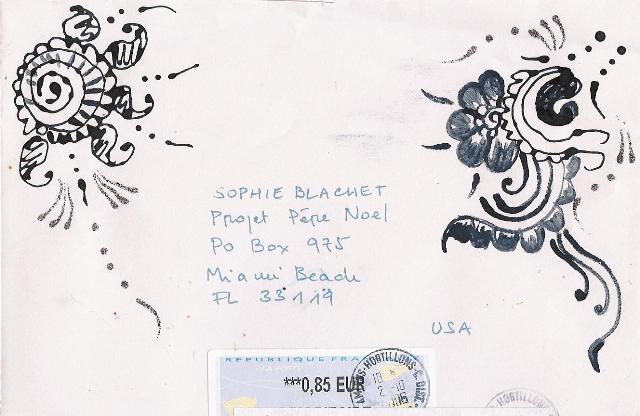 SOPHIE BLACHET
Projet Père Noel
Po Box 975
Miami Beach
FL 33119
USA
REPUBLIQUE FRA
LA POSTE
***0,85 EUR
HORTILLONS